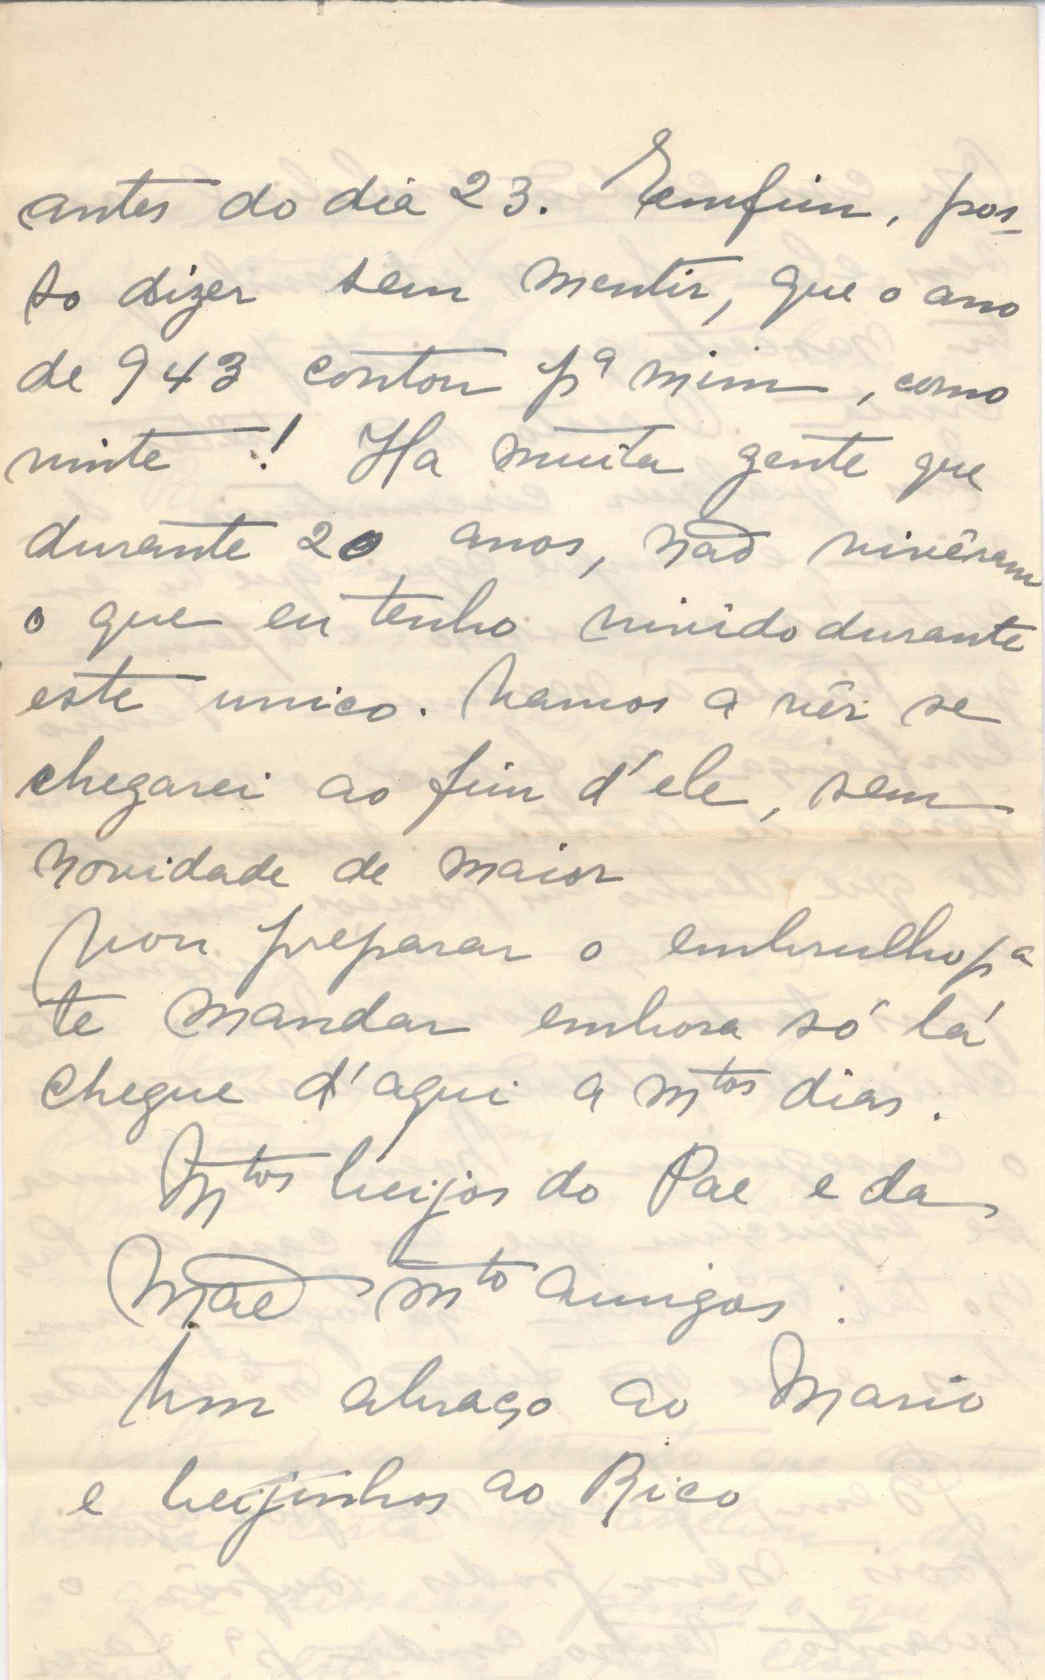 antes do dia 23. Emfim, pos-
so dizer sem mentir, que o ano
de 943 contou pª mim, como
vinte! Ha muita gente que
durante 20 anos, não vivêram
o que eu tenho vivido durante
este unico. Vamos a vêr se
chegarei ao fim d'ele, sem
novidade de maior
Vou preparar o embrulho pª
te mandar embora só lá
chegue d'aqui a mtos dias.
Mtos beijos do Pae e da
Mãe mto amigos:
Um abraço ao Mario
e beijinhos ao Rico